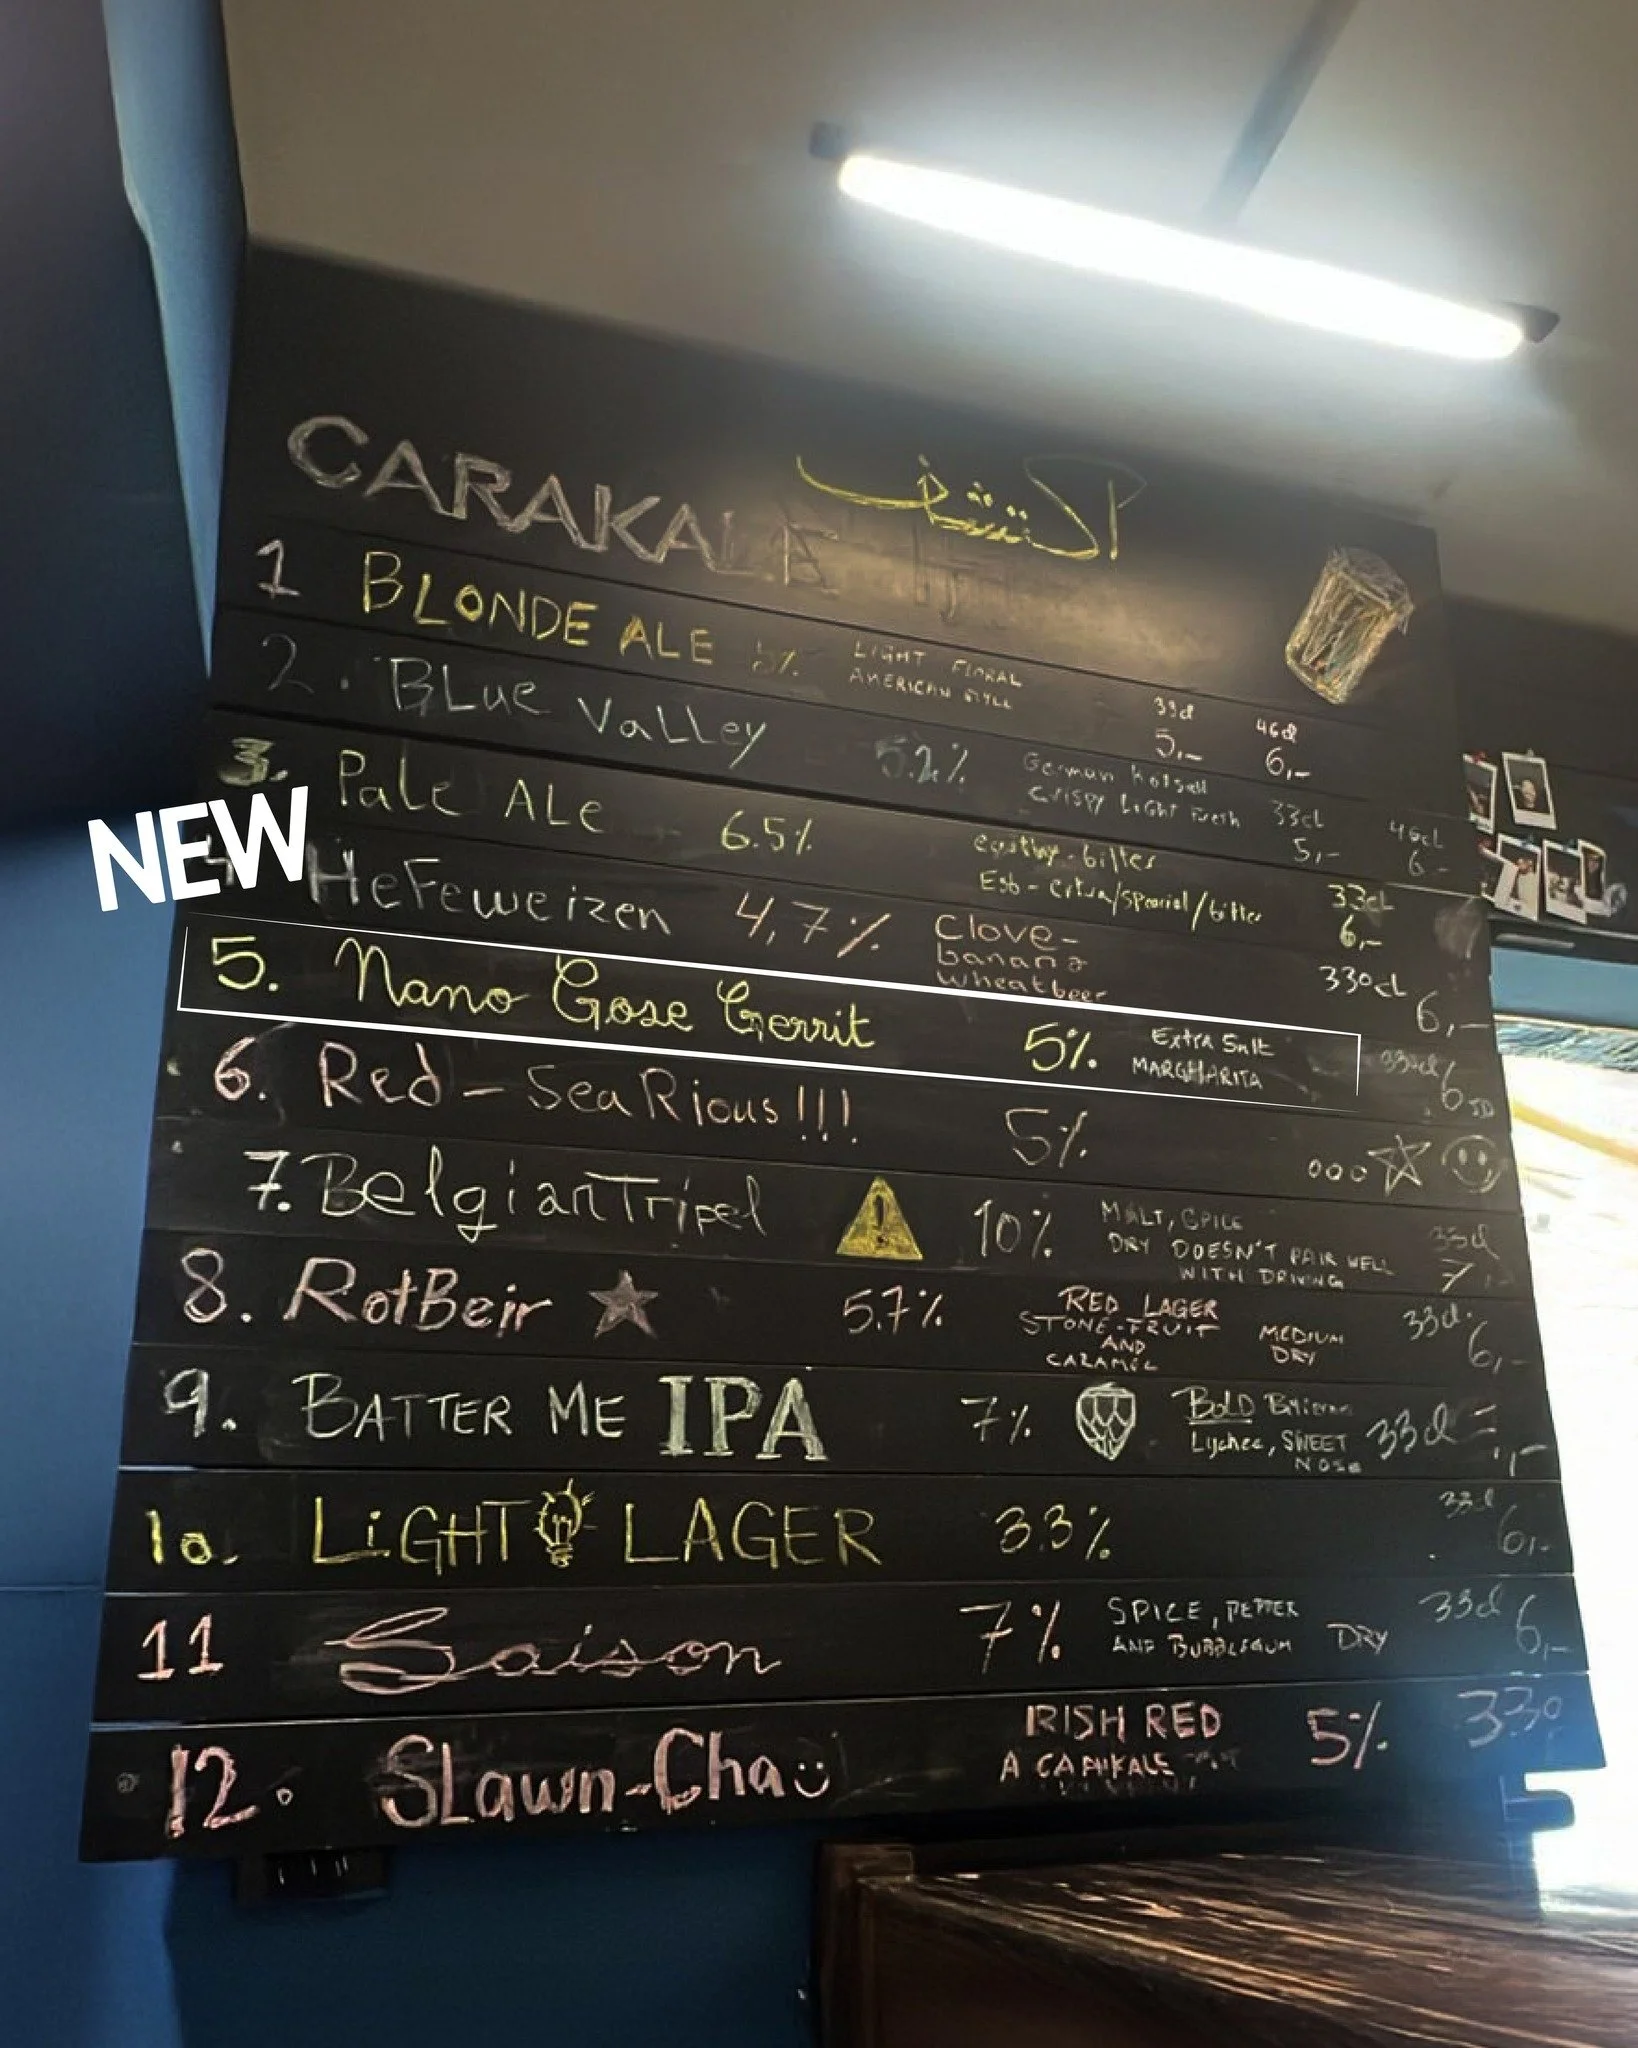 CARAKALE اكتشف
1 BLONDE ALE 5% LIGHT FLORAL
AMERICAN STYLE
33cl 46cl
5,- 6,-
2. BLue Valley 5.2%
CRISPY LIGHT
33cl 46cl
5,- 6-
3. Pale ALe 6.5% earthy-bitter
Esb - extra/special/bitter
33cL
6,-
NEW
4. HeFeweizen 4,7% Clove-
banana
wheatbeer
330cL
6,-
5. Nano Gose Gerrit 5% Extra Salt
MARGHARITA
330cl
6 JD
6. Red-SeaRious!!! 5%
7. BelgianTripel 10% MALT, SPICE
DRY DOESN'T PAIR WELL
WITH DRIVING
33cl
7,-
8. RotBeir 5.7% RED LAGER
STONE-FRUIT
AND
CARAMEL
MEDIUM
DRY
33cl.
6,-
9. BATTER ME IPA 7% BOLD
Lychee, SWEET
NOSE
33cl
10. LiGHT LAGER 3.3% 33cl 6,-
11 Saison 7% SPICE, PEPPER
AND BUBBLEGUM
DRY 33cl 6,-
12. SLawn-Cha IRISH RED
A CARAKALE
5% 330